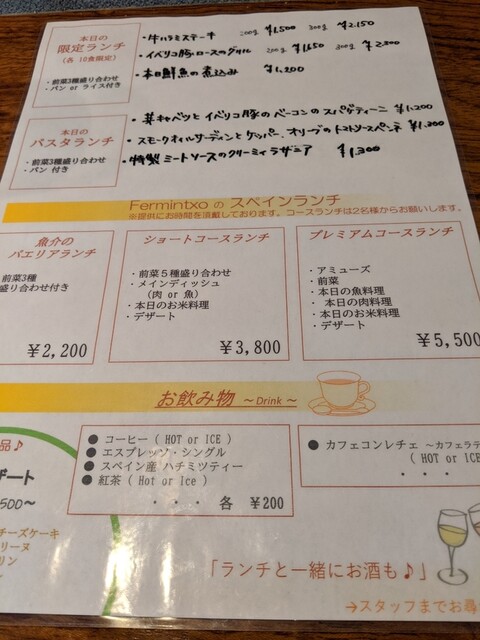 本日の
限定ランチ
(各 10食限定)
・前菜3種盛り合わせ
・パン or ライス付き
・牛ハラミステーキ 200g ¥1,500 300g ¥2,150
・イベリコ豚ロースのグリル 200g ¥1,650 300g
・本日鮮魚の煮込み ¥1,200
本日の
パスタランチ
・前菜3種盛り合わせ
・パン 付き
キャベツとイベリコ豚のベーコンのスパゲティーニ ¥1,200
・スモークオイルサーディンとケッパー、オリーブのトマトソースペンネ ¥1,300
・特製ミートソースのクリーミィラザニア ¥1,300
Fermintxo の スペインランチ
※提供にお時間を頂戴しております。コースランチは2名様からお願いします。
魚介の
パエリアランチ
前菜3種
盛り合わせ付き
¥2,200
ショートコースランチ
・前菜5種盛り合わせ
・メインディッシュ
(肉 or 魚)
・本日のお米料理
・デザート
¥3,800
プレミアムコースランチ
・アミューズ
・前菜
・本日の魚料理
・本日の肉料理
・本日のお米料理
・デザート
¥5,500
お飲み物 ～Drink～
● コーヒー ( HOT or ICE )
● エスプレッソ・シングル
● スペイン産 ハチミツティー
● 紅茶 ( Hot or Ice )
・・・ 各 ¥200
● カフェコンレチェ ～カフェラテ
( HOT or ICE
・・・
品♪
ザート
500～
チーズケーキ
リーヌ
リン
「ランチと一緒にお酒も♪」
→スタッフまでお尋